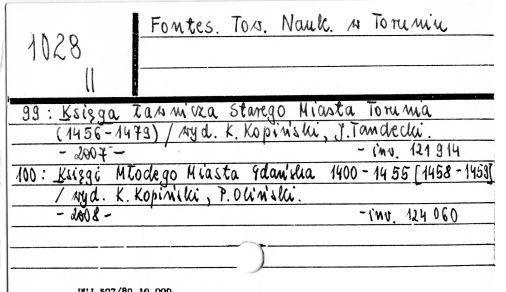 1028
II
Fontes. Tow. Nauk. w Toruniu
99: Księga Ławnicza Starego Miasta Torunia
(1456-1479) / wyd. K. Kopiński, J. Tandecki.
- 2007 - - inv. 121 914
100: Księgi Młodego Miasta Gdańska 1400-1455 [1458-1459]
/ wyd. K. Kopiński, P. Oliński.
- 2008 - - inv. 124 060